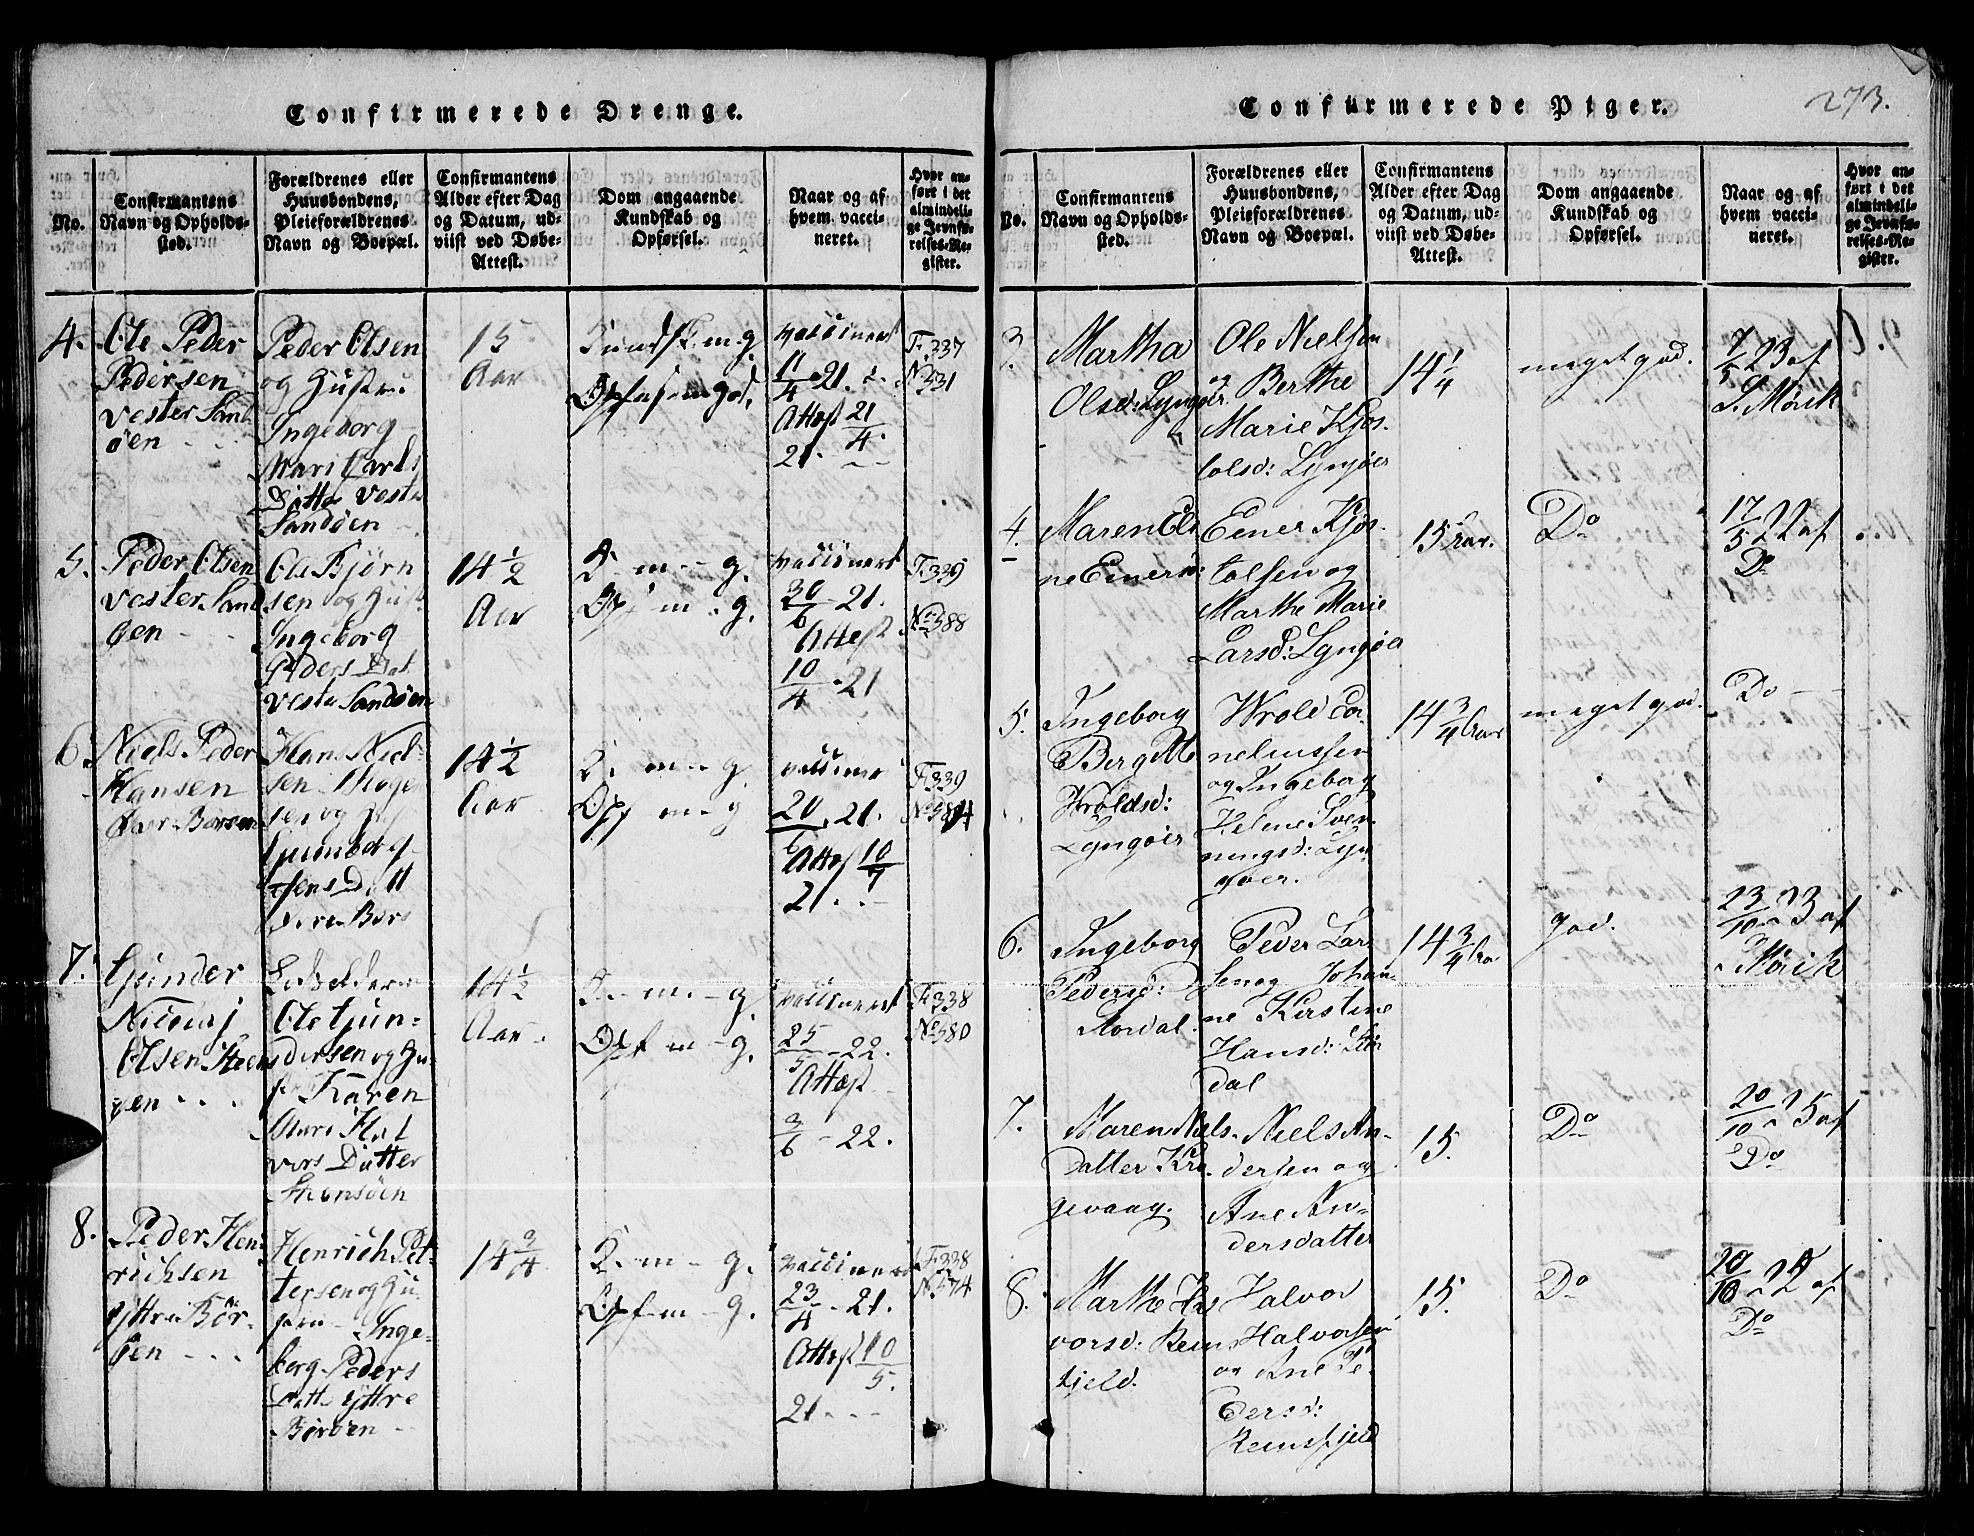 Confirmerede Drenge.
No.
Confirmantens
Navn og Opholds-
sted.
Forældrenes eller
Huusbondens,
Pleieforældrenes
Navn og Boepæl.
Confirmantens
Alder efter Dag
og Datum, ud-
viist ved Døbe-
Attest.
Dom angaaende
Kundskab og
Opførsel.
Naar og af
hvem vacci-
neret.
Hvor an-
ført i det
almindeli-
ge Jevnfø-
relses-Re-
gister.
4.
Ole Peder
Pedersen
Vester Sand
øen
Peder Olsen
og Hustru
Ingeborg
Mari Carls
Datter Vester
Sandøen
15
Aar
Kundsk. m. g.
Opførs. m. god.
Vaccineret
11/4 21.
Attest 21/4
21.
F. 337
No 531
5.
Peder Olsen
Vester Sand
øen
Ole Bjørn
sen og Hust
Ingeborg
Peders Dat
Vester Sandøen
14 1/2
Aar
K. m. g.
Opf m. g.
Vaccineret
30/6 21.
Attest
10/4 21
F. 339
No 588
6.
Niels Peder
Hansen
Hans Niel-
sen
14 1/2
Aar
K. m. g
Opf m g
vaccineret
20/6 21.
Attest 10/4
21.
F. 339
7.
Gunder
Nicolaj
Olsen
Ole Gun-
dersen og Hu-
Karen
Mari Hal
vors Datter
14 1/2
Aar.
K. m. g.
Opf m g.
vaccineret
25/5 22.
Attest
3/6 22.
F. 338
No 580
8.
Peder Hen-
richsen
Yttre Bør-
øen
Henrich Pet-
tersen og Hu-
Inge-
borg Peders
Datt Yttre
Børøen
14 3/4
K. m. g.
Opf m g.
vaccineret
23/4 21.
Attest 10/5.
21
F. 338
No 574
Confirmerede Piger.
273.
No.
Confirmantens
Navn og Opholds-
sted.
Forældrenes eller
Huusbondens,
Pleieforældrenes
Navn og Boepæl.
Confirmantens
Alder efter Dag
og Datum, ud-
viist ved Døbe-
Attest.
Dom angaaende
Kundskab og
Opførsel.
Naar og af
hvem vacci-
neret.
Hvor an-
ført i det
almindeli-
ge Jevnfø-
relses-Re-
gister.
3.
Martha
Olsd: Lyngøer
Ole Nielsen
og Berthe
Marie Kjøs-
tolsd: Lyngøer
14 1/4
meget god.
7/5 23 af
S. Mørik
4.
Maren Eli
ne Einersd:
Einer Kjøs-
tolsen og
Marthe Marie
Larsd: Lyngøer
15 Aar.
Do
17/5 22 af
Do
5.
Ingeborg
Bergitte
Wroldsd:
Lyngøer
Wrold Cor
neliussen
og Ingeborg
Helene Sven
ningsd: Lyn
gøer.
14 3/4 Aar
meget god.
Do
6.
Ingeborg
Pedersd:
Peder Lar
sen og Johan
ne Kirstine
Hansd:
dal
14 3/4 Aar
god.
23/10 23 af
Mørik
7.
Maren Niels
datter Kra
gevaag.
Niels An-
dersen og
Ane An-
dersdatter
15.
Do
20/10 25 af
Do
8.
Marthe Hal
vorsd: Rems
fjeld.
Halvor
Halvorsen
og Ane Pe
dersd:
Remsfjeld
15.
Do
20/10 22 af
Do